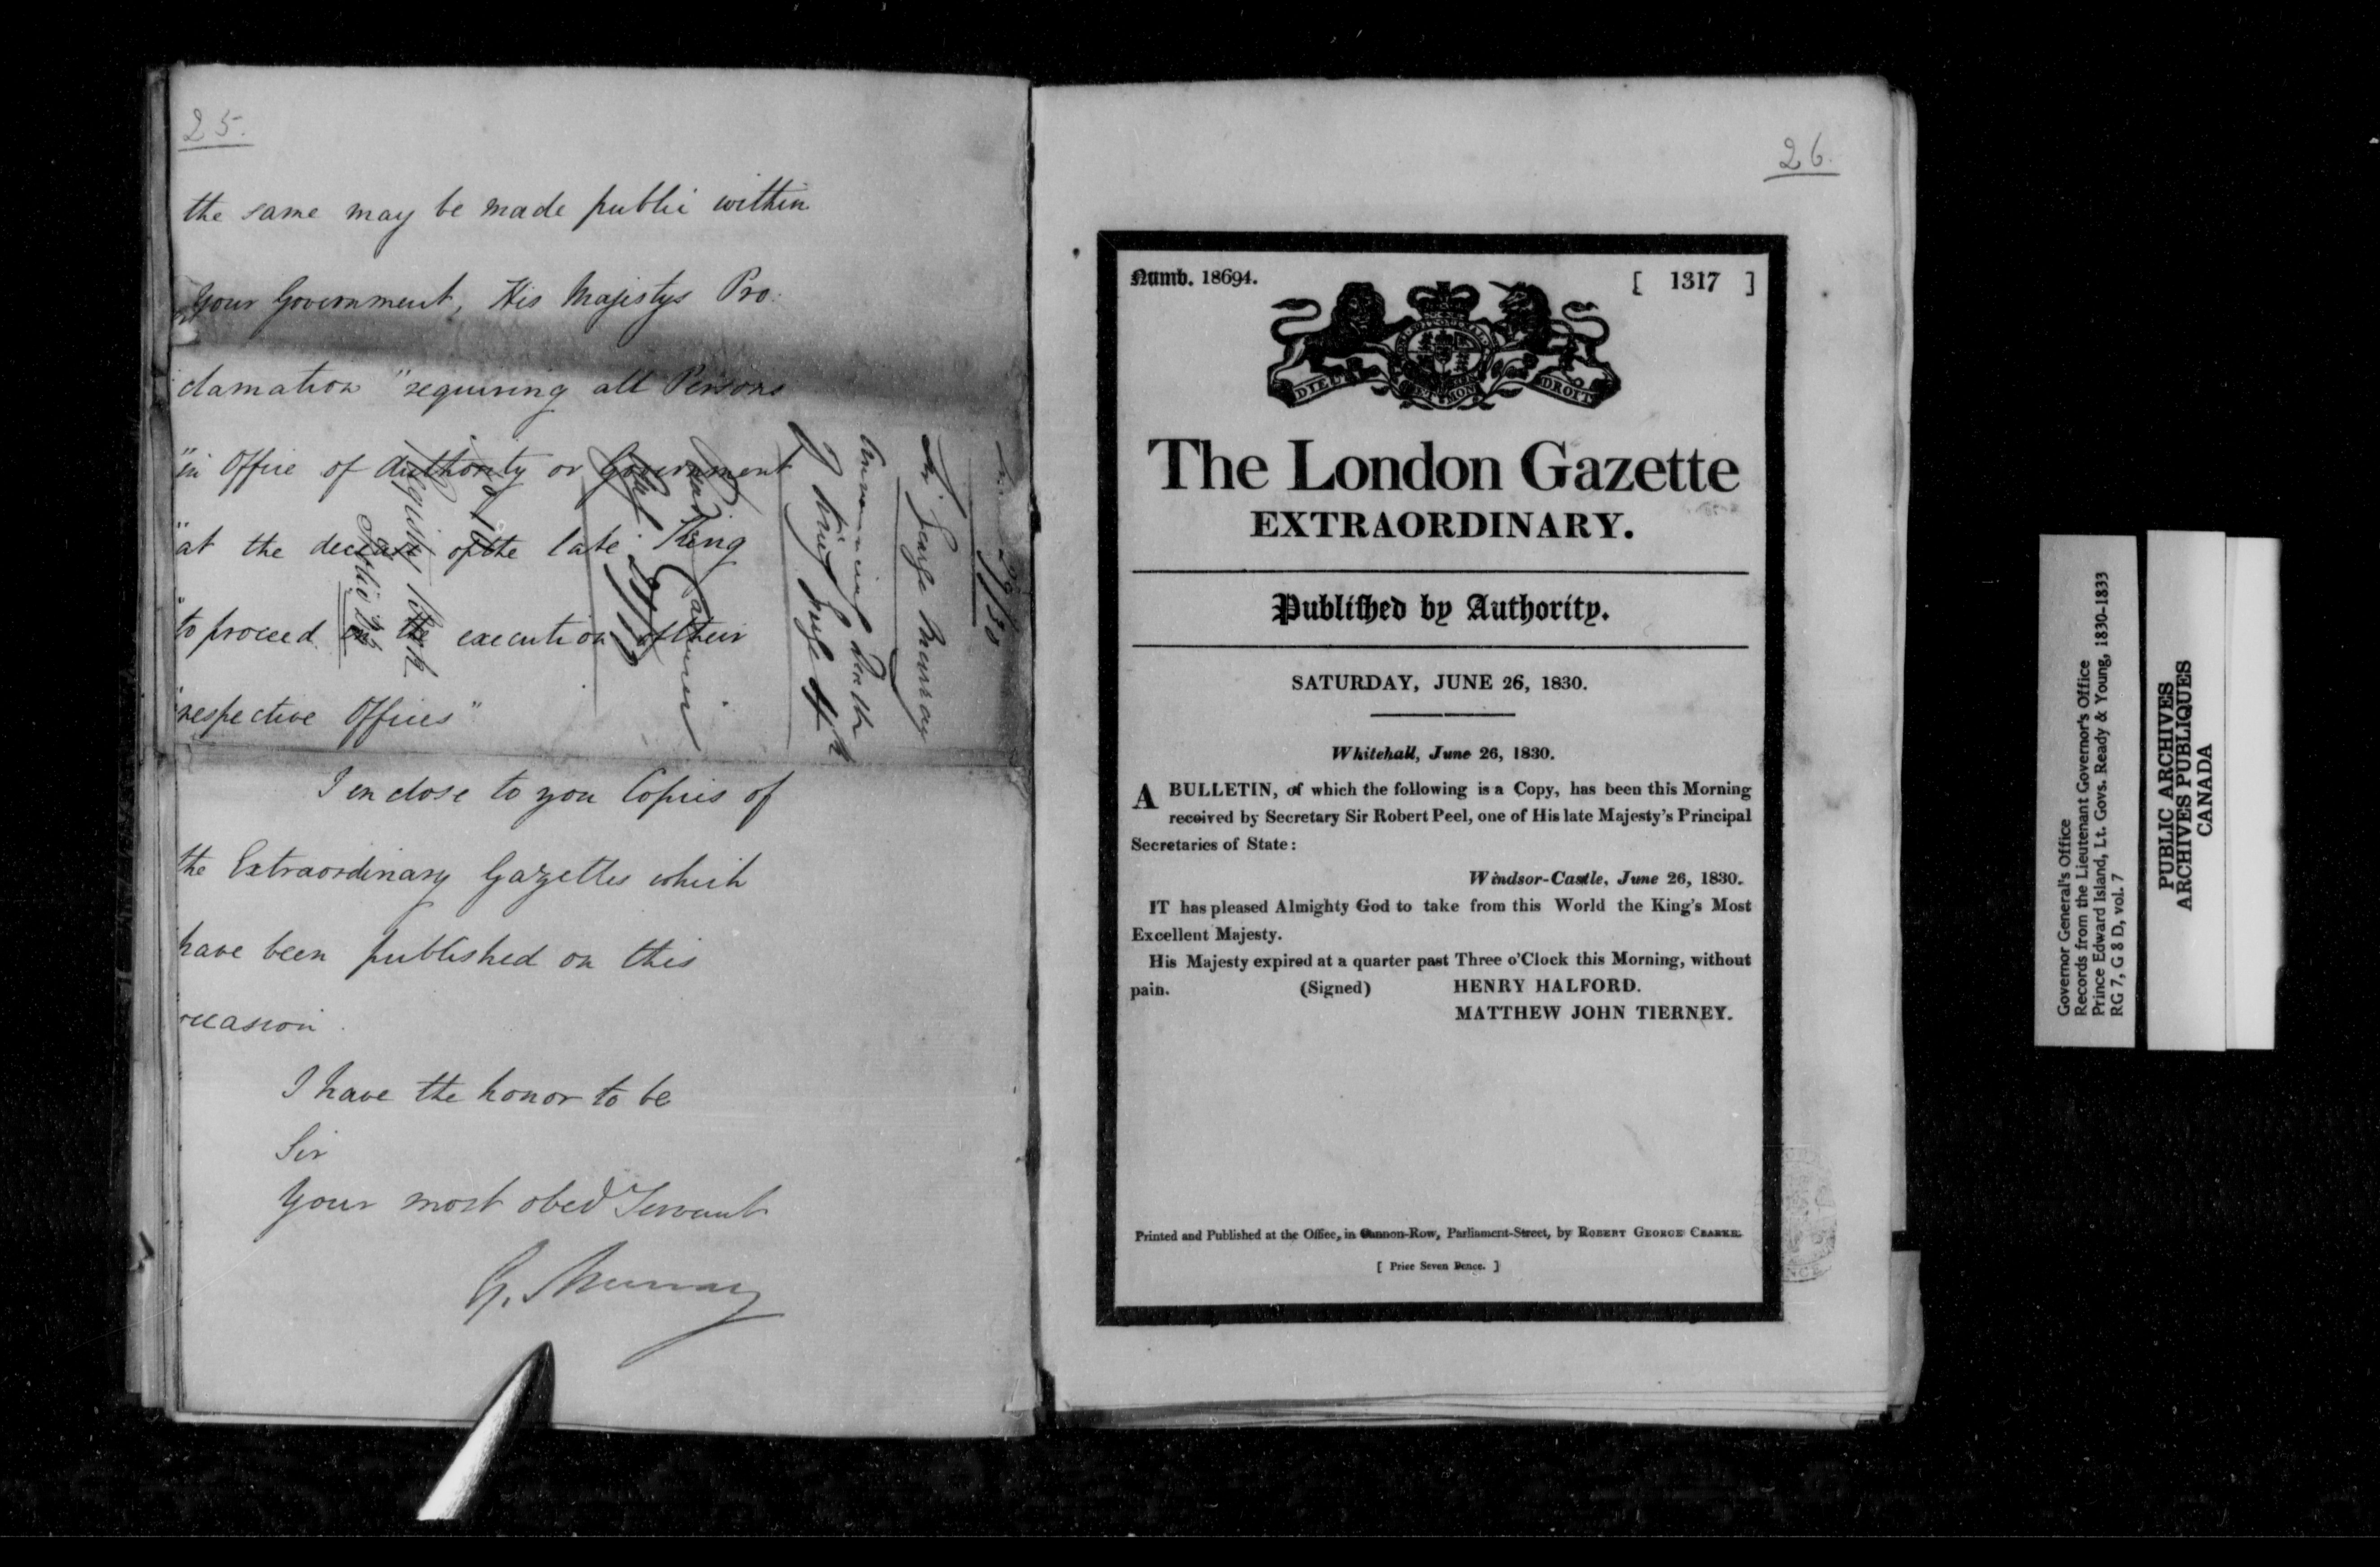 25.
the same may be made public within
Your Government, His Majestys Pro-
clamation "requiring all Persons
"in Office of Authority or Government
"at the decease of the late King
"to proceed in the execution of their
"respective Offices"
I enclose to you Copies of
the Extraordinary Gazettes which
have been published on this
occasion.
I have the honor to be
Sir
Your most obed Servant
G. Murray
Sir George Murray
Announcing Death
of King George 4th
26.
Numb. 18694.
[ 1317 ]
DIEU ET MON DROIT
The London Gazette
EXTRAORDINARY.
Published by Authority.
SATURDAY, JUNE 26, 1830.
Whitehall, June 26, 1830.
A BULLETIN, of which the following is a Copy, has been this Morning
received by Secretary Sir Robert Peel, one of His late Majesty's Principal
Secretaries of State:
Windsor-Castle, June 26, 1830.
IT has pleased Almighty God to take from this World the King's Most
Excellent Majesty.
His Majesty expired at a quarter past Three o'Clock this Morning, without
pain. (Signed) HENRY HALFORD.
MATTHEW JOHN TIERNEY.
Printed and Published at the Office, in Cannon-Row, Parliament-Street, by ROBERT GEORGE CLARKE.
[ Price Seven Pence. ]
Governor General's Office
Records from the Lieutenant Governor's Office
Prince Edward Island, Lt. Govs. Ready & Young, 1830-1833
RG 7, G 8 D, vol. 7
PUBLIC ARCHIVES
ARCHIVES PUBLIQUES
CANADA